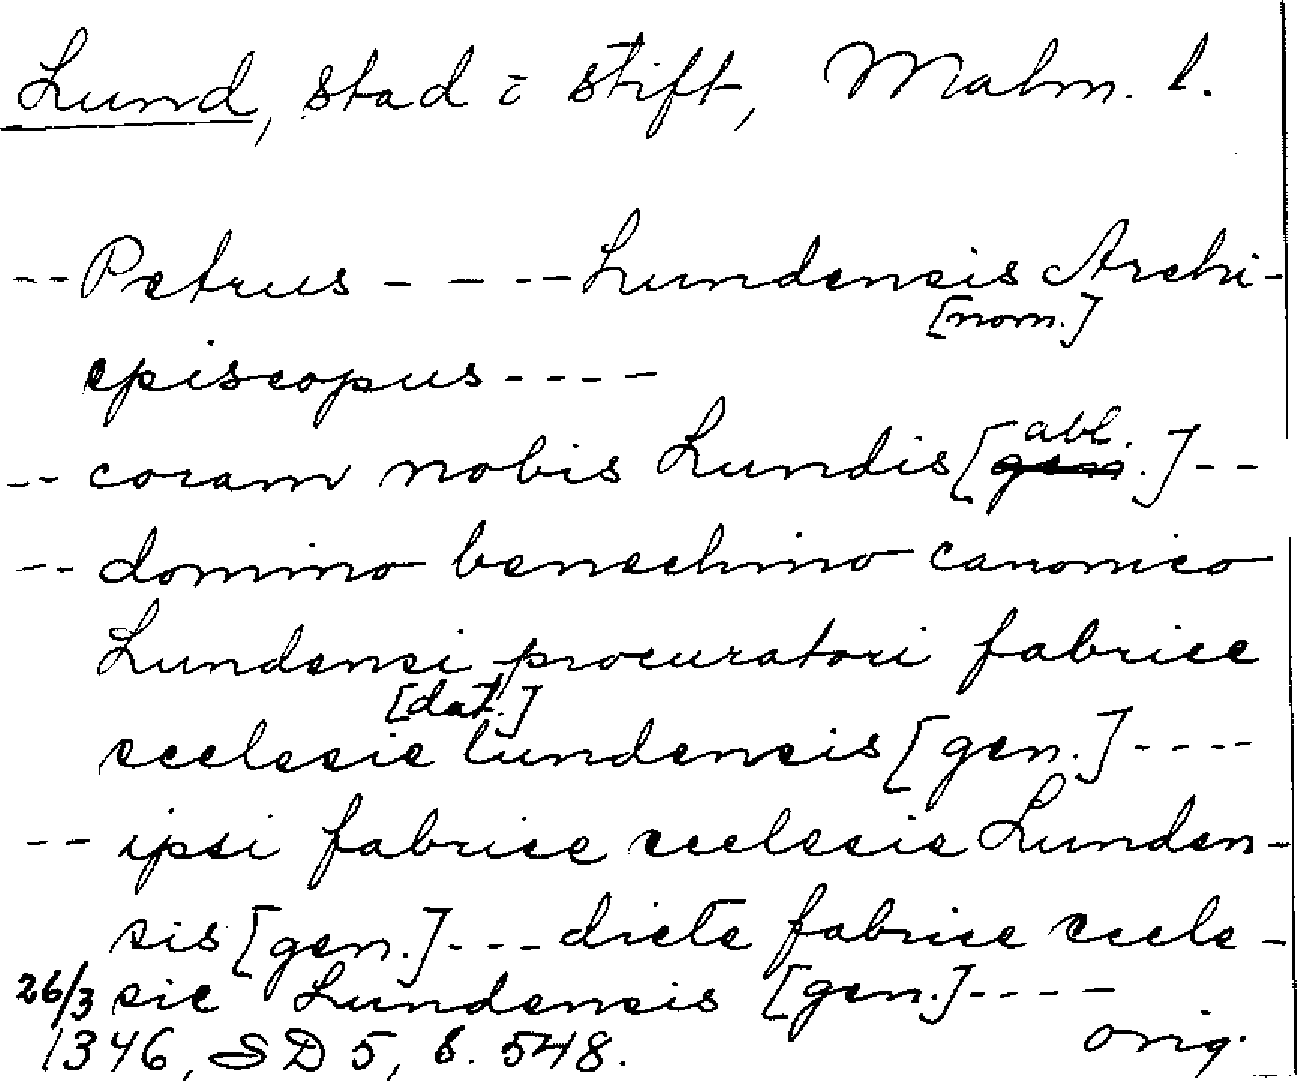 Lund, stad o stift, Malm. l.
-- Petrus - - -- Lundensis Archi-
[nom.]
episcopus ----
-- coram nobis Lundis [abl. gen.] --
-- domino benechino canonico
Lundensi procuratori fabrice
[dat.]
ecclesie lundensis [gen.] ----
-- ipsi fabrice ecclesie Lunden-
sis [gen.] --- dicte fabrice eccle-
sie Lundensis [gen.] ----
26/3 1346, SD 5, s. 548.
orig.